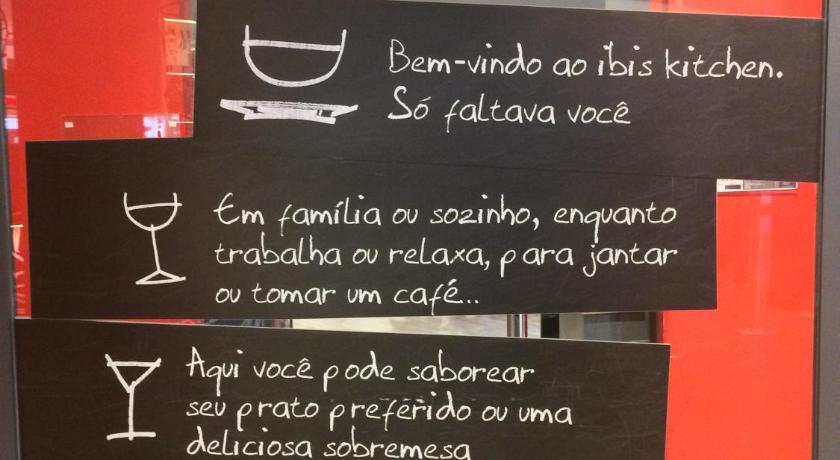 Bem-vindo ao ibis kitchen.
Só faltava você
Em família ou sozinho, enquanto
trabalha ou relaxa, para jantar
ou tomar um café...
Aqui você pode saborear
seu prato preferido ou uma
deliciosa sobremesa